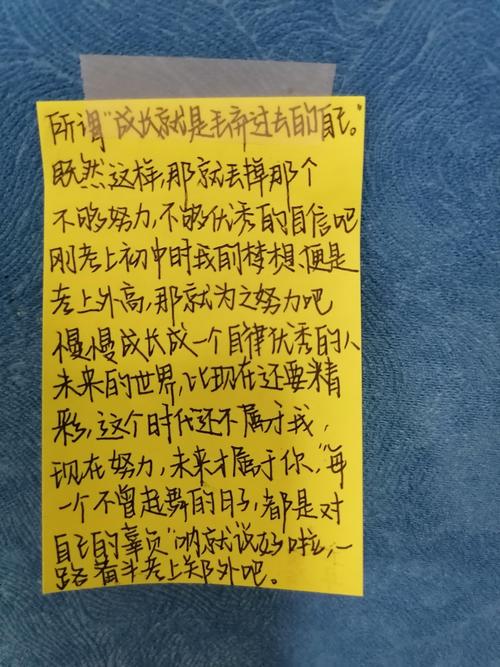 所谓"成长就是丢弃过去的自己。"
既然这样,那就丢掉那个
不够努力,不够优秀的自信吧
刚考上初中时我的梦想,便是
考上外高,那就为之努力吧
慢慢成长成一个自律优秀的人
未来的世界,比现在还要精
彩,这个时代还不属于我,
现在努力,未来才属于你,"每
一个不曾起舞的日子,都是对
自己的辜负"呐就说好啦,一
路奋斗考上郑外吧。